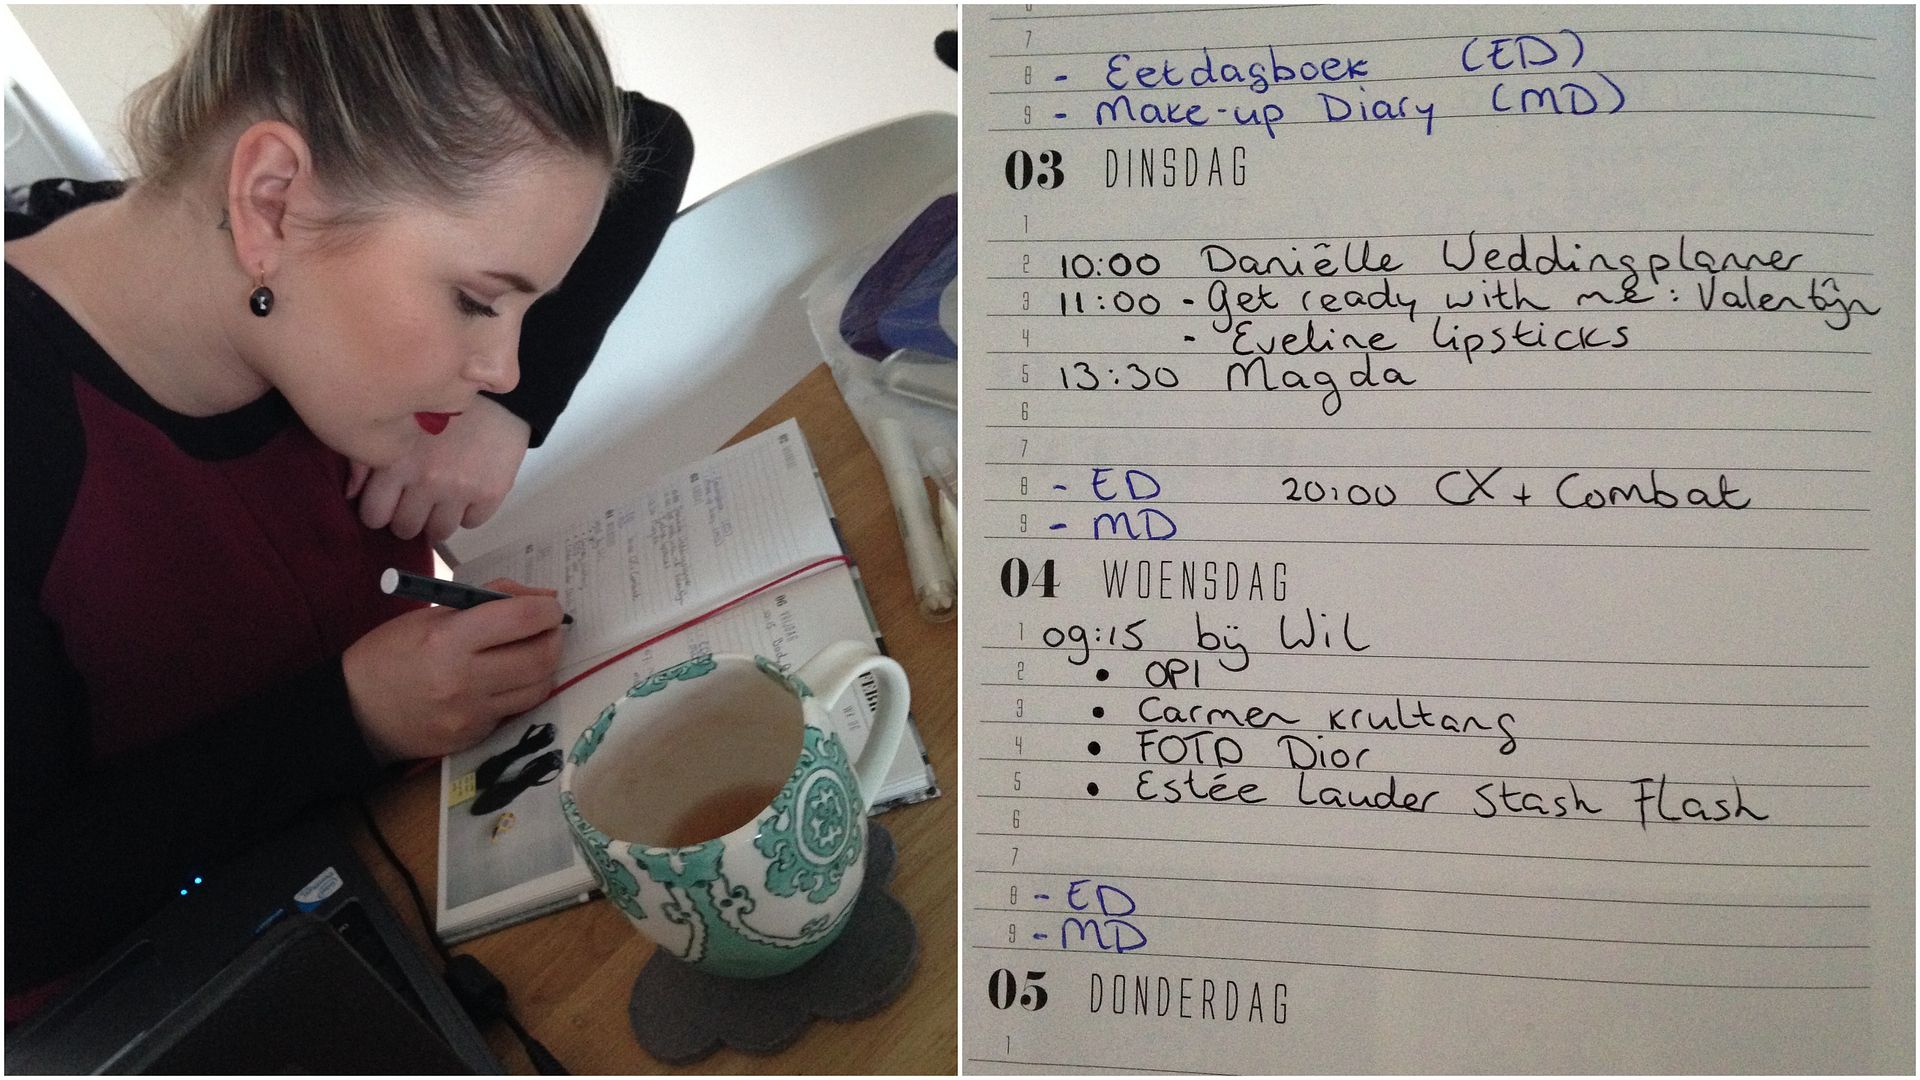 7
8 - Eetdagboek (ED)
9 - Make-up Diary (MD)
03 DINSDAG
1
2 10:00 Daniëlle Weddingplanner
3 11:00 - Get ready with me: Valentijn
4 - Eveline lipsticks
5 13:30 Magda
6
7
8 - ED 20:00 CX + Combat
9 - MD
04 WOENSDAG
1 09:15 bij Wil
2 • OPI
3 • Carmen krultang
4 • FOTD Dior
5 • Estée Lauder Stash Flash
6
7
8 - ED
9 - MD
05 DONDERDAG
1
06 VRIJDAG